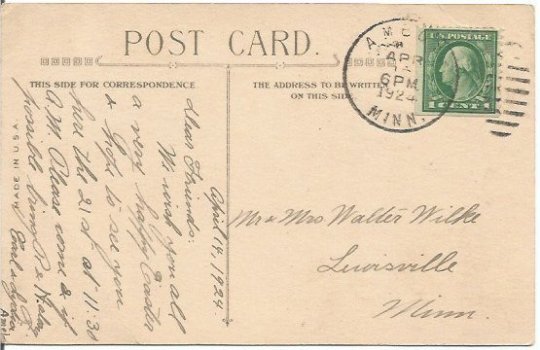 POST CARD.
THIS SIDE FOR CORRESPONDENCE
THE ADDRESS TO BE WRITTEN
ON THIS SIDE
APR
6PM
MINN.
U.S. POSTAGE
1 CENT 1
April 14, 1924.
Dear Friends:
We wish you all
a very happy Easter
& hope to see you
here the 21st at 11:30
A.M. Please come & if
possible bring
Mr & Mrs Walter Wilke
Lewisville
Minn.
MADE IN U.S.A.